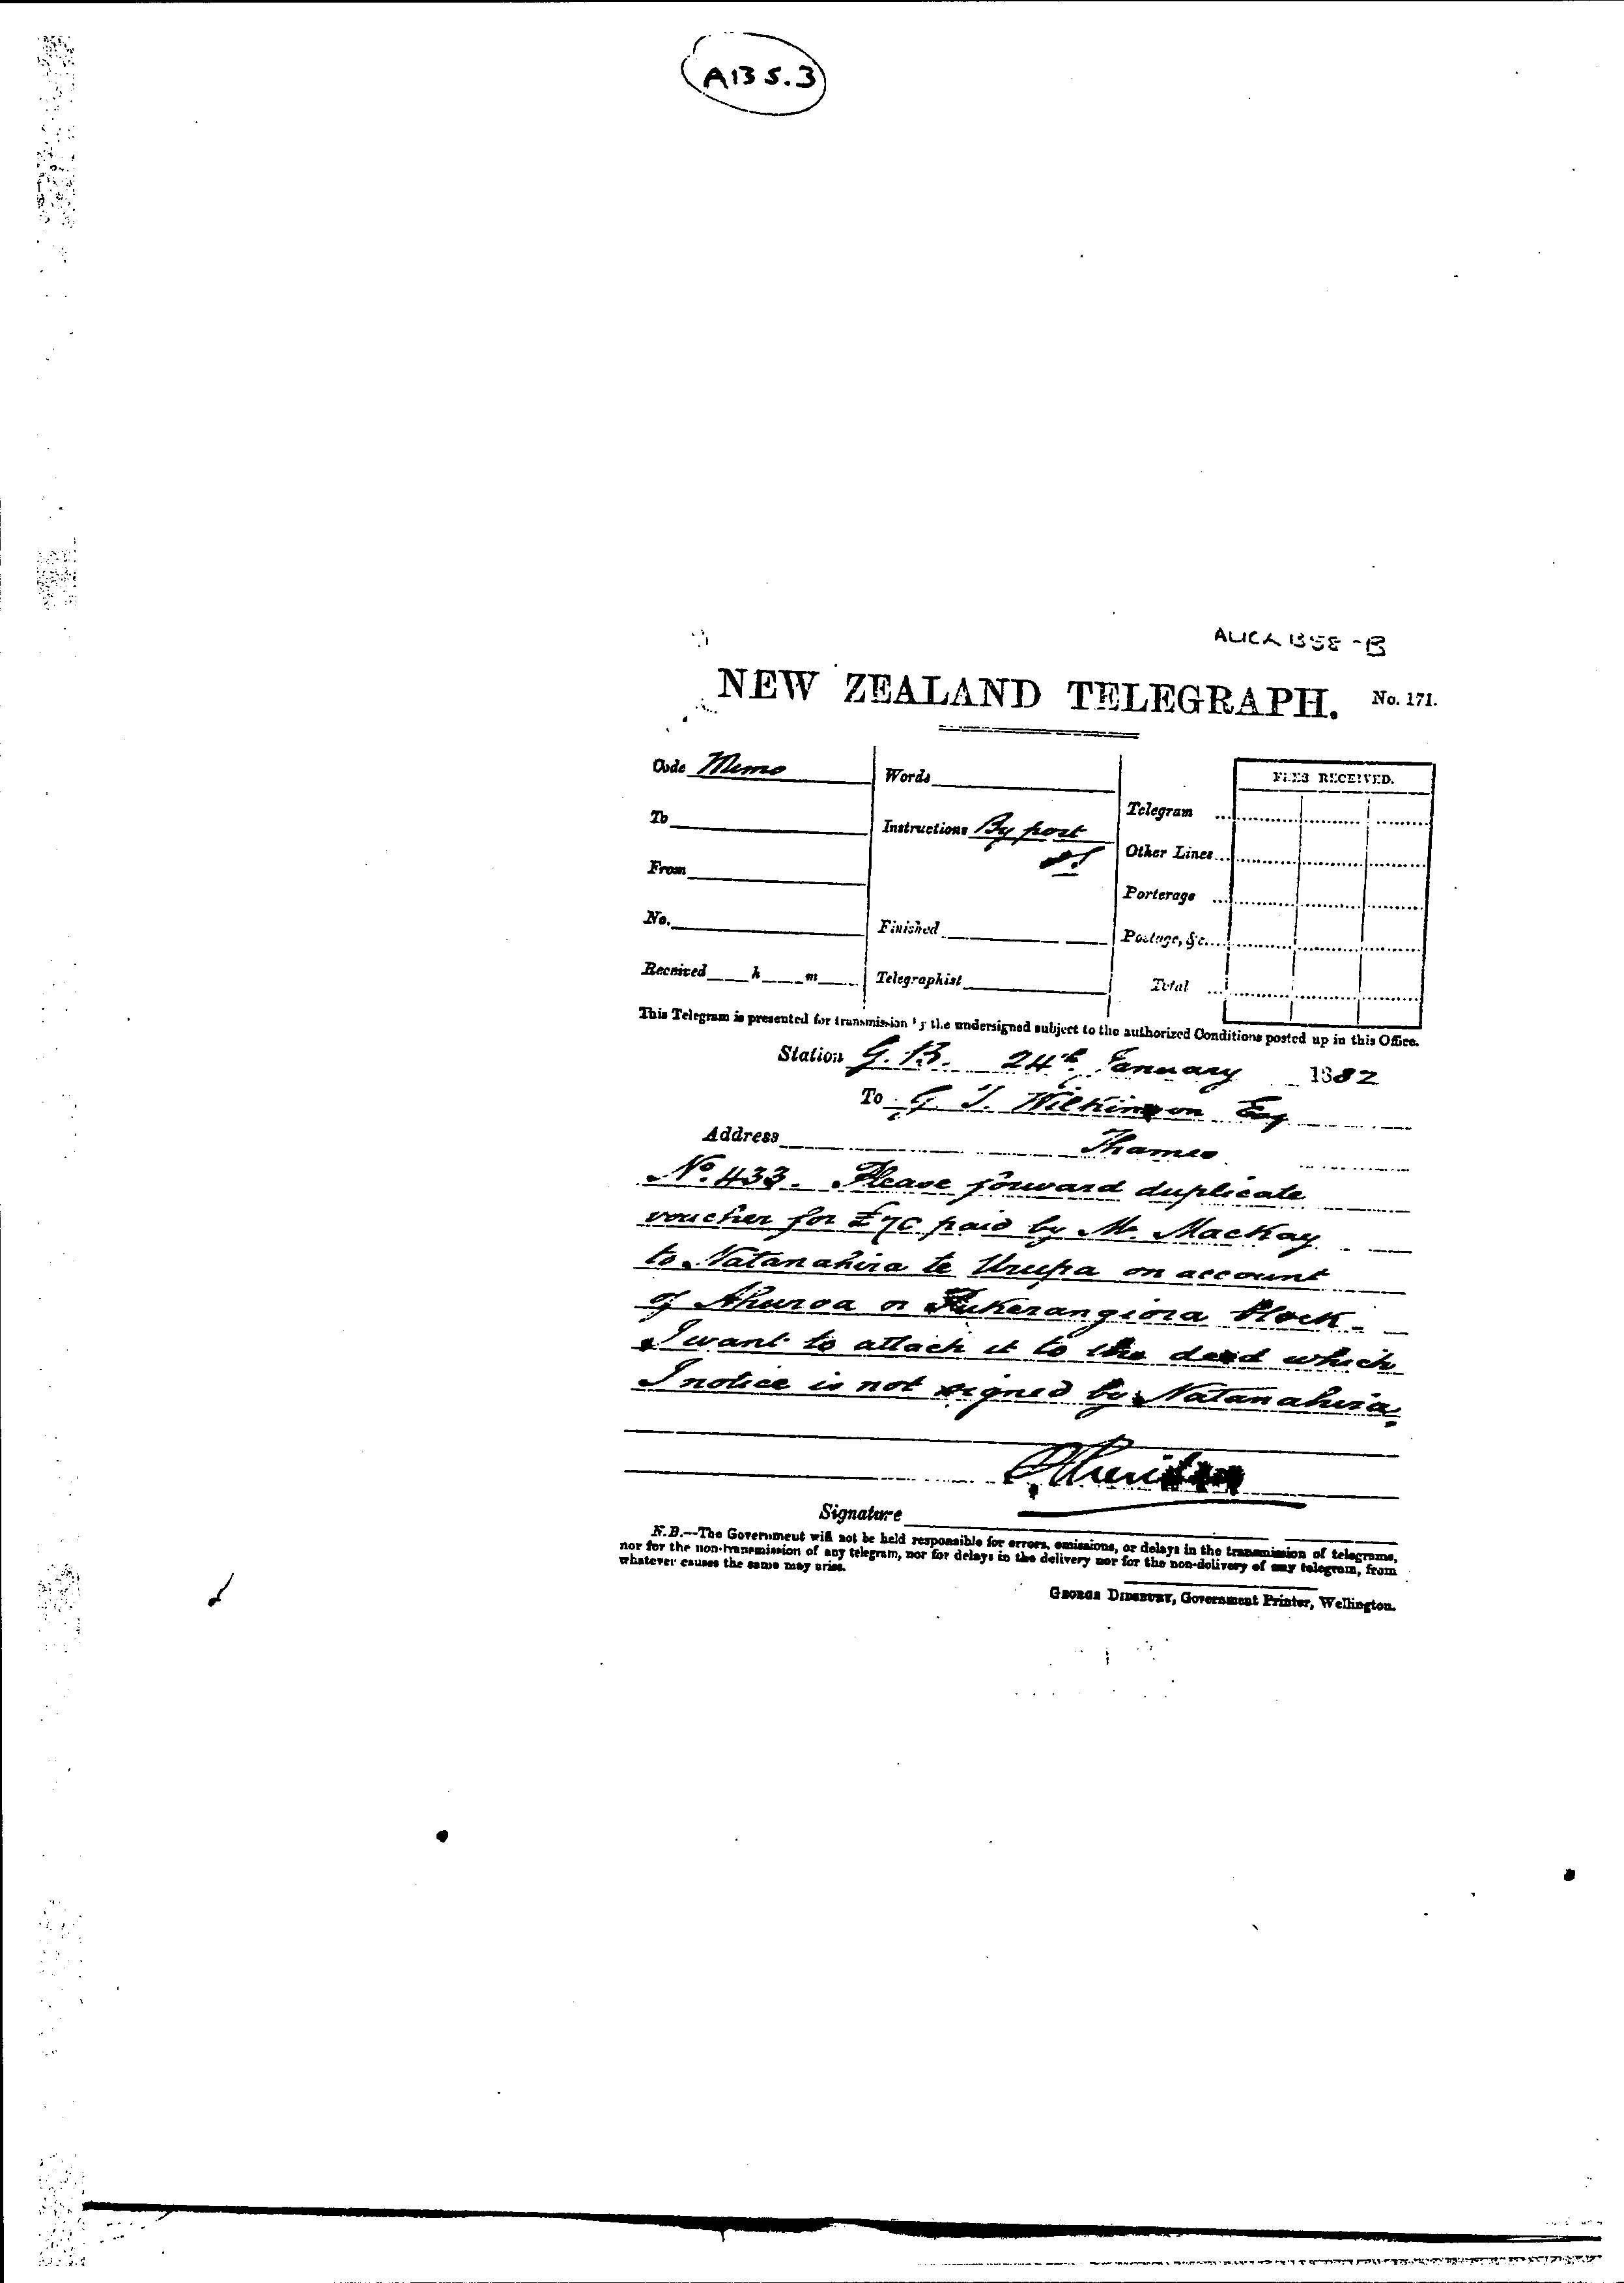 A135.3
AUCK 1358-B
NEW ZEALAND TELEGRAPH. No. 171.
Code Memo
Words
FEES RECEIVED.
To
Instructions By post
Telegram
Other Lines
From
Porterage
No.
Finished
Postage, &c.
Received h m
Telegraphist
Total
This Telegram is presented for transmission by the undersigned subject to the authorized Conditions posted up in this Office.
Station G. B. 24th January 1882
To G. T. Wilkinson Esq
Address Thames
No. 433. Please forward duplicate
voucher for £70 paid by Mr. MacKay
to Natanahira te Urupa on account
of Ahuroa or Pukerangiora Block.
I want to attach it to the deed which
I notice is not signed by Natanahira.
Signature
N.B.--The Government will not be held responsible for errors, omissions, or delays in the transmission of telegrams,
nor for the non-transmission of any telegram, nor for delays in the delivery nor for the non-delivery of any telegram, from
whatever causes the same may arise.
GEORGE DIDSBURY, Government Printer, Wellington.